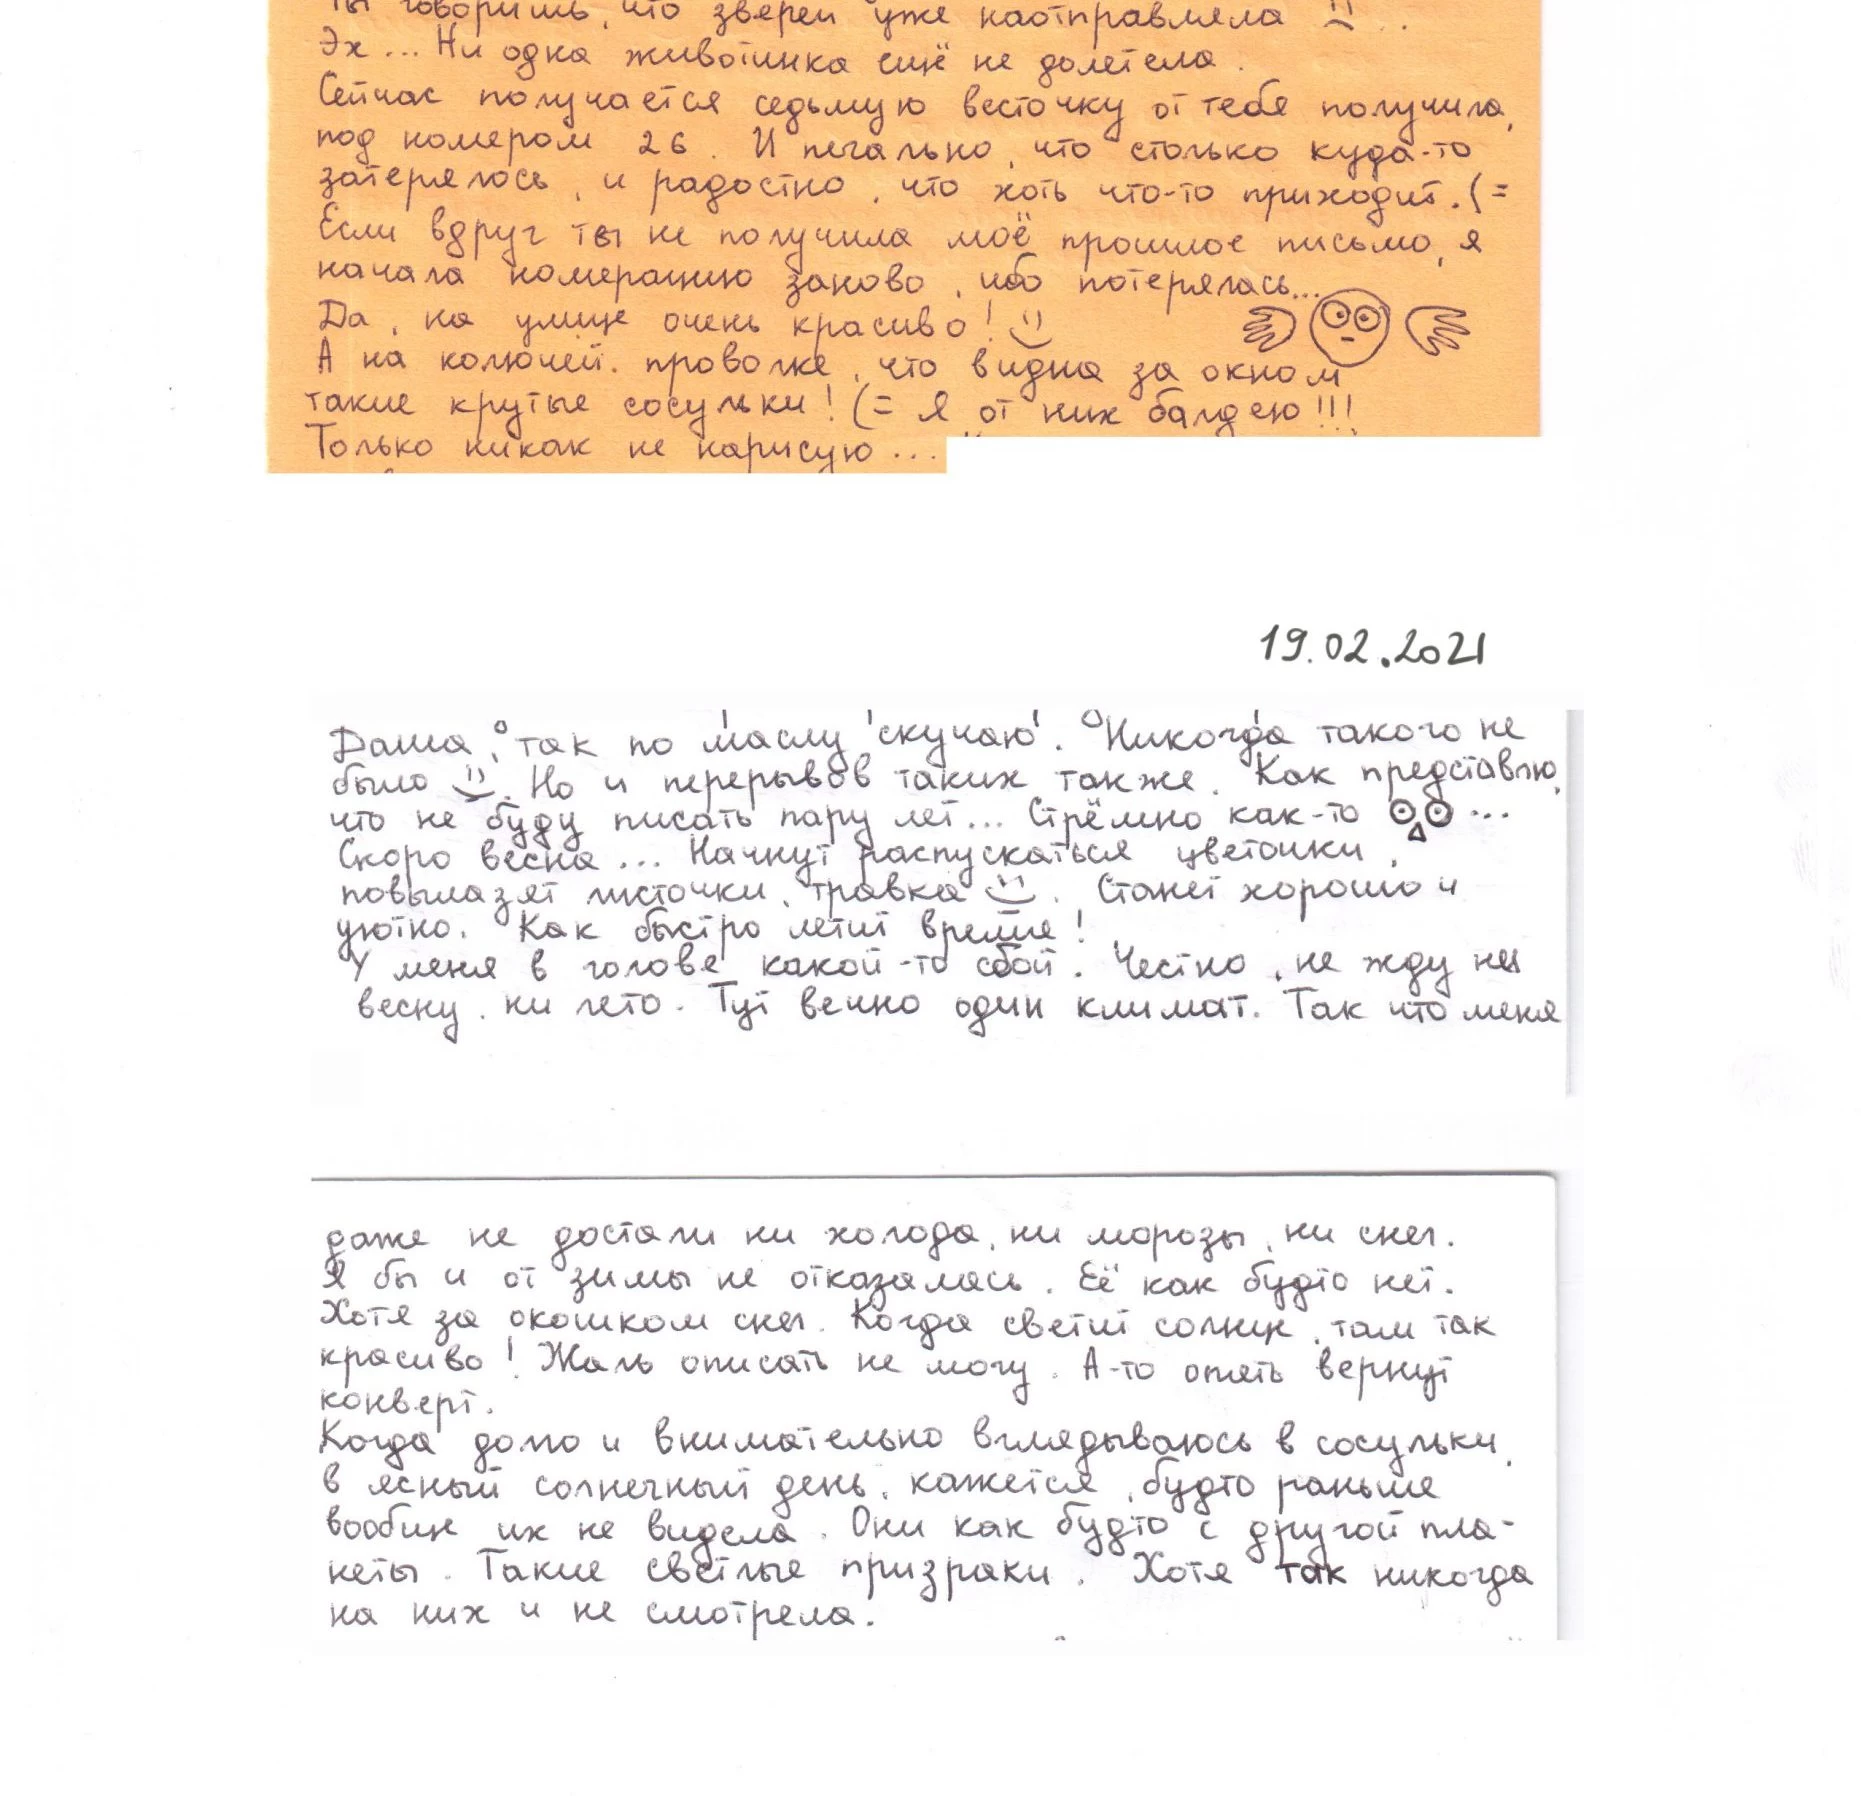 Ты говоришь, что зверей уже наотправляла
Эх... Ни одна животинка ещё не долетела.
Сейчас получается седьмую весточку от тебя получила,
под номером 26. И печально, что столько куда-то
затерялось, и радостно, что хоть что-то приходит. (=
Если вдруг ты не получила моё прошлое письмо, я
начала нумерацию заново, ибо потерялась...
Да, на улице очень красиво!
А на колючей проволке, что видна за окном
такие крутые сосульки! (= Я от них балдею!!!
Только никак не нарисую...
19.02.2021
Даша, так по маслу скучаю. Никогда такого не
было. Но и перерывов таких также. Как представлю,
что не буду писать пару лет... Стрёмно как-то ...
Скоро весна... Начнут распускаться цветочки,
повылазят листочки, травка. Станет хорошо и
уютно. Как быстро летит время!
У меня в голове какой-то сбой. Честно, не жду ни
весну, ни лето. Тут вечно один климат. Так что меня
даже не достали ни холода, ни морозы, ни снег.
Я бы и от зимы не отказалась. Её как будто нет.
Хотя за окошком снег. Когда светит солнце, там так
красиво! Жаль описать не могу. А-то опять вернут
конверт.
Когда долго и внимательно вглядываюсь в сосульки,
в ясный солнечный день, кажется, будто раньше
вообще их не видела. Они как будто с другой пла-
неты. Такие светлые призраки. Хотя так никогда
на них и не смотрела.